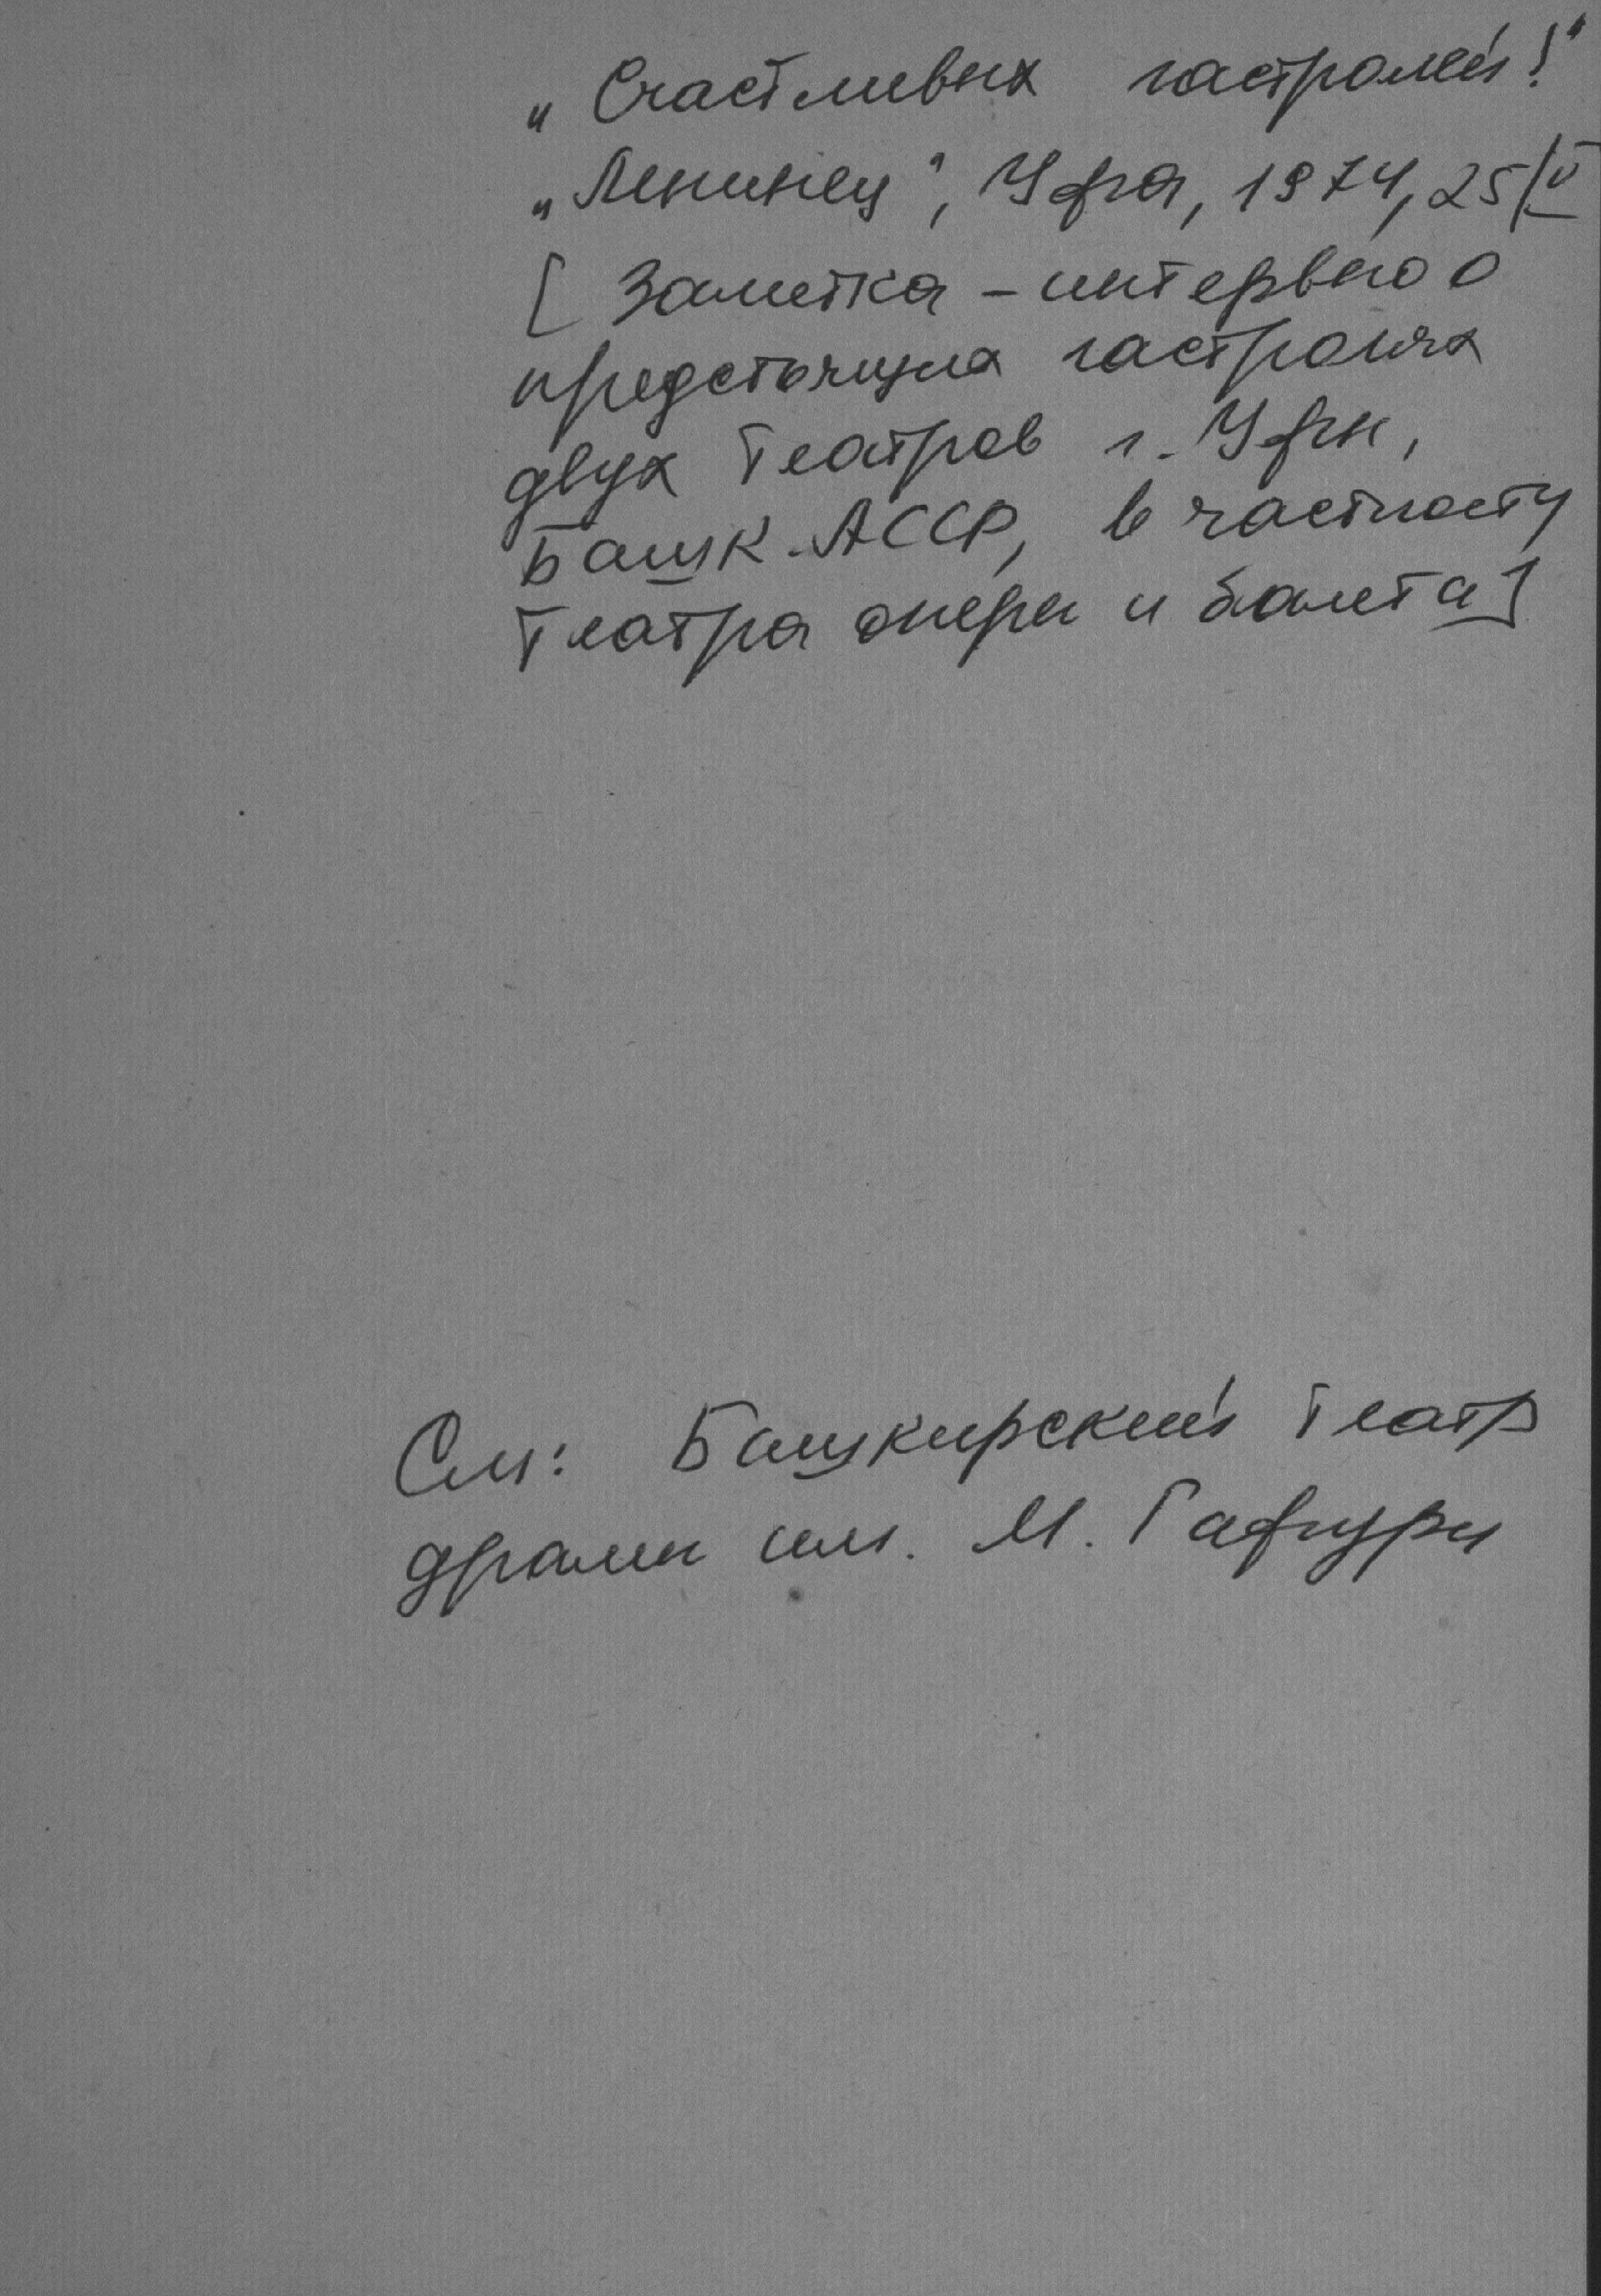 „Счастливых гастролей!"
„Ленинец", Уфа, 1974, 25/V
[Заметка - интервью о
предстоящих гастролях
двух театров г. Уфы,
Башк. АССР, в частности
театра оперы и балета]
См: Башкирский театр
драмы им. М. Гафури